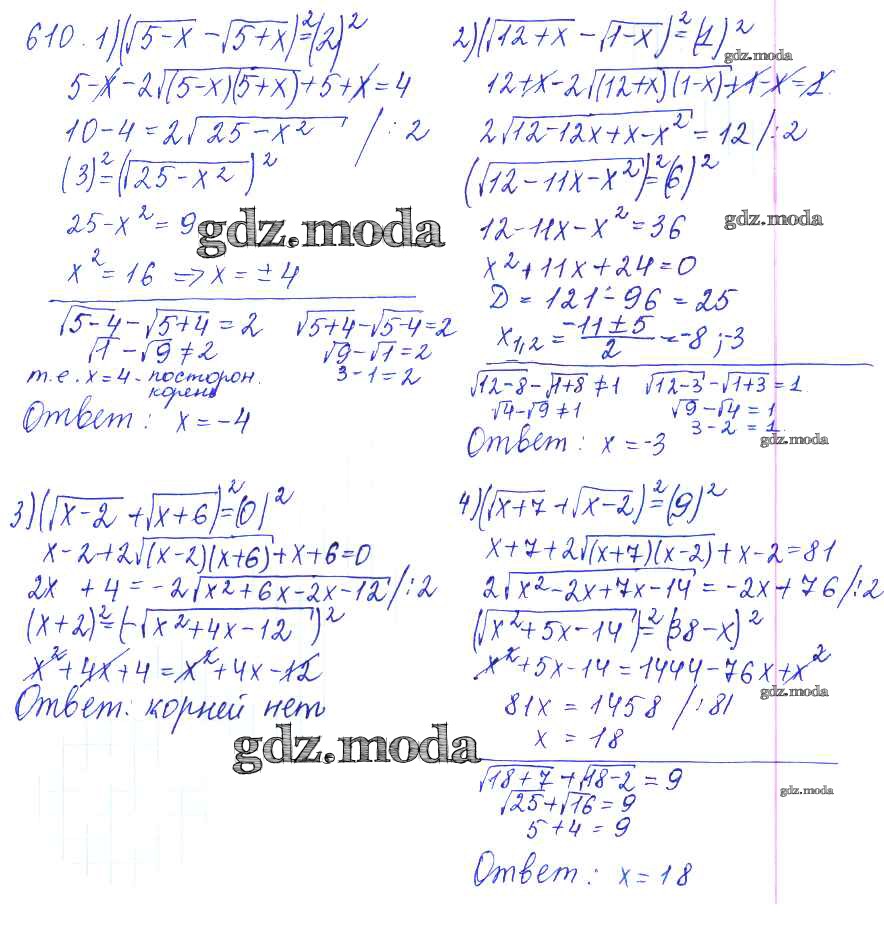 610. 1) (√5-x - √5+x)²=(2)²
5-x-2√(5-x)(5+x)+5+x=4
10-4=2√25-x² /:2
(3)²=(√25-x²)²
25-x²=9
x²=16 => x=±4
√5-4-√5+4=2 √5+4-√5-4=2
√1-√9≠2 √9-√1=2
т.е. x=4 - посторон. 3-1=2
корень
Ответ: x=-4
2) (√12+x - √1-x)²=(1)²
12+x-2√(12+x)(1-x)+1-x=1.
2√12-12x+x-x²=12 /:2
(√12-11x-x²)²=(6)²
12-11x-x²=36
x²+11x+24=0
D=121-96=25
x₁,₂=-11±5/2=-8;-3
√12-8-√1+8≠1 √12-3-√1+3=1.
√4-√9≠1 √9-√4=1
3-2=1.
Ответ: x=-3
3) (√x-2+√x+6)²=(0)²
x-2+2√(x-2)(x+6)+x+6=0
2x+4=-2√x²+6x-2x-12 /:2
(x+2)²=(-√x²+4x-12)²
x²+4x+4=x²+4x-12
Ответ: корней нет
4) (√x+7+√x-2)²=(9)²
x+7+2√(x+7)(x-2)+x-2=81
2√x²-2x+7x-14=-2x+76 /:2
(√x²+5x-14)²=(38-x)²
x²+5x-14=1444-76x+x²
81x=1458 /:81
x=18
√18+7+√18-2=9
√25+√16=9
5+4=9
Ответ: x=18
gdz.moda
gdz.moda
gdz.moda
gdz.moda
gdz.moda
gdz.moda
gdz.moda